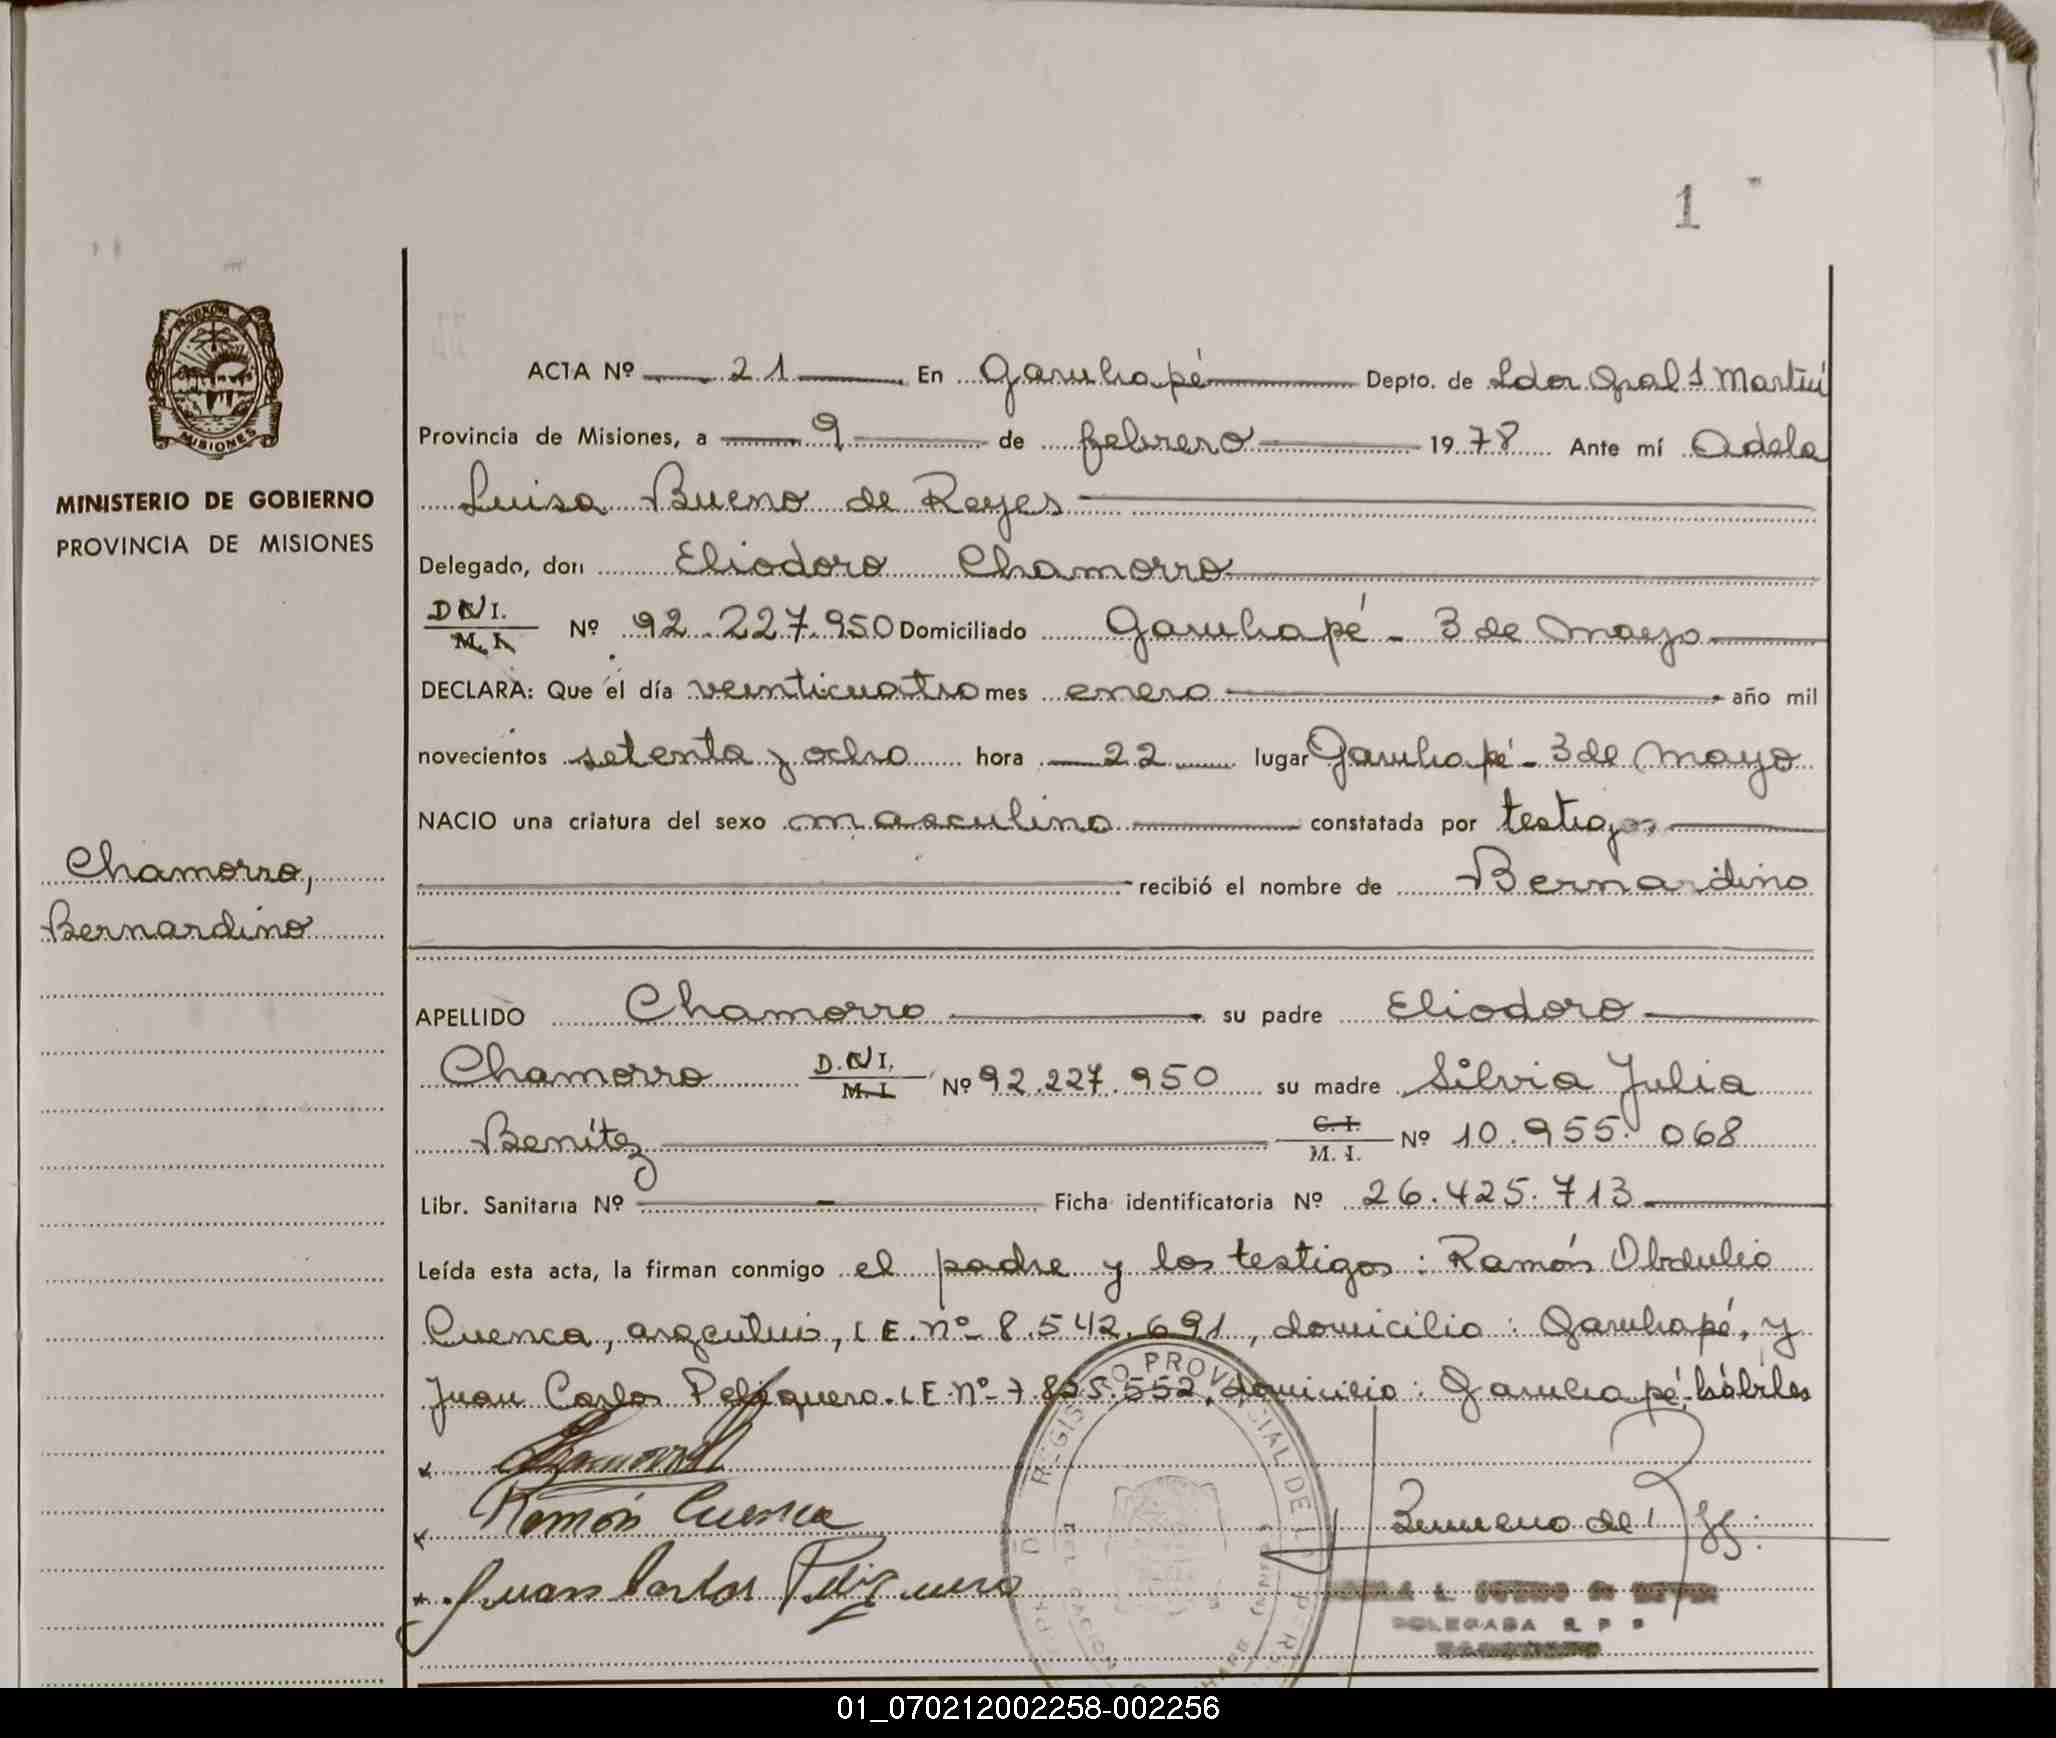 1
PROVINCIA DE
MISIONES
MINISTERIO DE GOBIERNO
PROVINCIA DE MISIONES
Chamorro,
Bernardino
ACTA Nº 21 En Garuhapé Depto. de Ldor Gral S Martín
Provincia de Misiones, a 9 de febrero 1978 Ante mí Adela
Luisa Bueno de Reyes
Delegado, don Eliodoro Chamorro
D.N.I.
M. I. Nº 92.227.950 Domiciliado Garuhapé - 3 de Mayo
DECLARA: Que el día veinticuatro mes enero año mil
novecientos setenta y ocho hora 22 lugar Garuhapé - 3 de Mayo
NACIO una criatura del sexo masculino constatada por testigos,
recibió el nombre de Bernardino
APELLIDO Chamorro su padre Eliodoro
Chamorro D.N.I. M. I. Nº 92.227.950 su madre Silvia Julia
Benítez C. I. M. I. Nº 10.955.068
Libr. Sanitaria Nº - Ficha identificatoria Nº 26.425.713
Leída esta acta, la firman conmigo el padre y los testigos: Ramón Obdulio
Cuenca, argentino, L E. nº 8.542.691, domicilio: Garuhapé, y
Juan Carlos Peliquero. L E. nº 7.855.552, domicilio: Garuhapé, hábiles
x
x Ramón Cuenca
x Juan Carlos
REGISTRO PROVINCIAL DE LAS PERS
DELEGACION
DELEGADA R P P
01_070212002258-002256